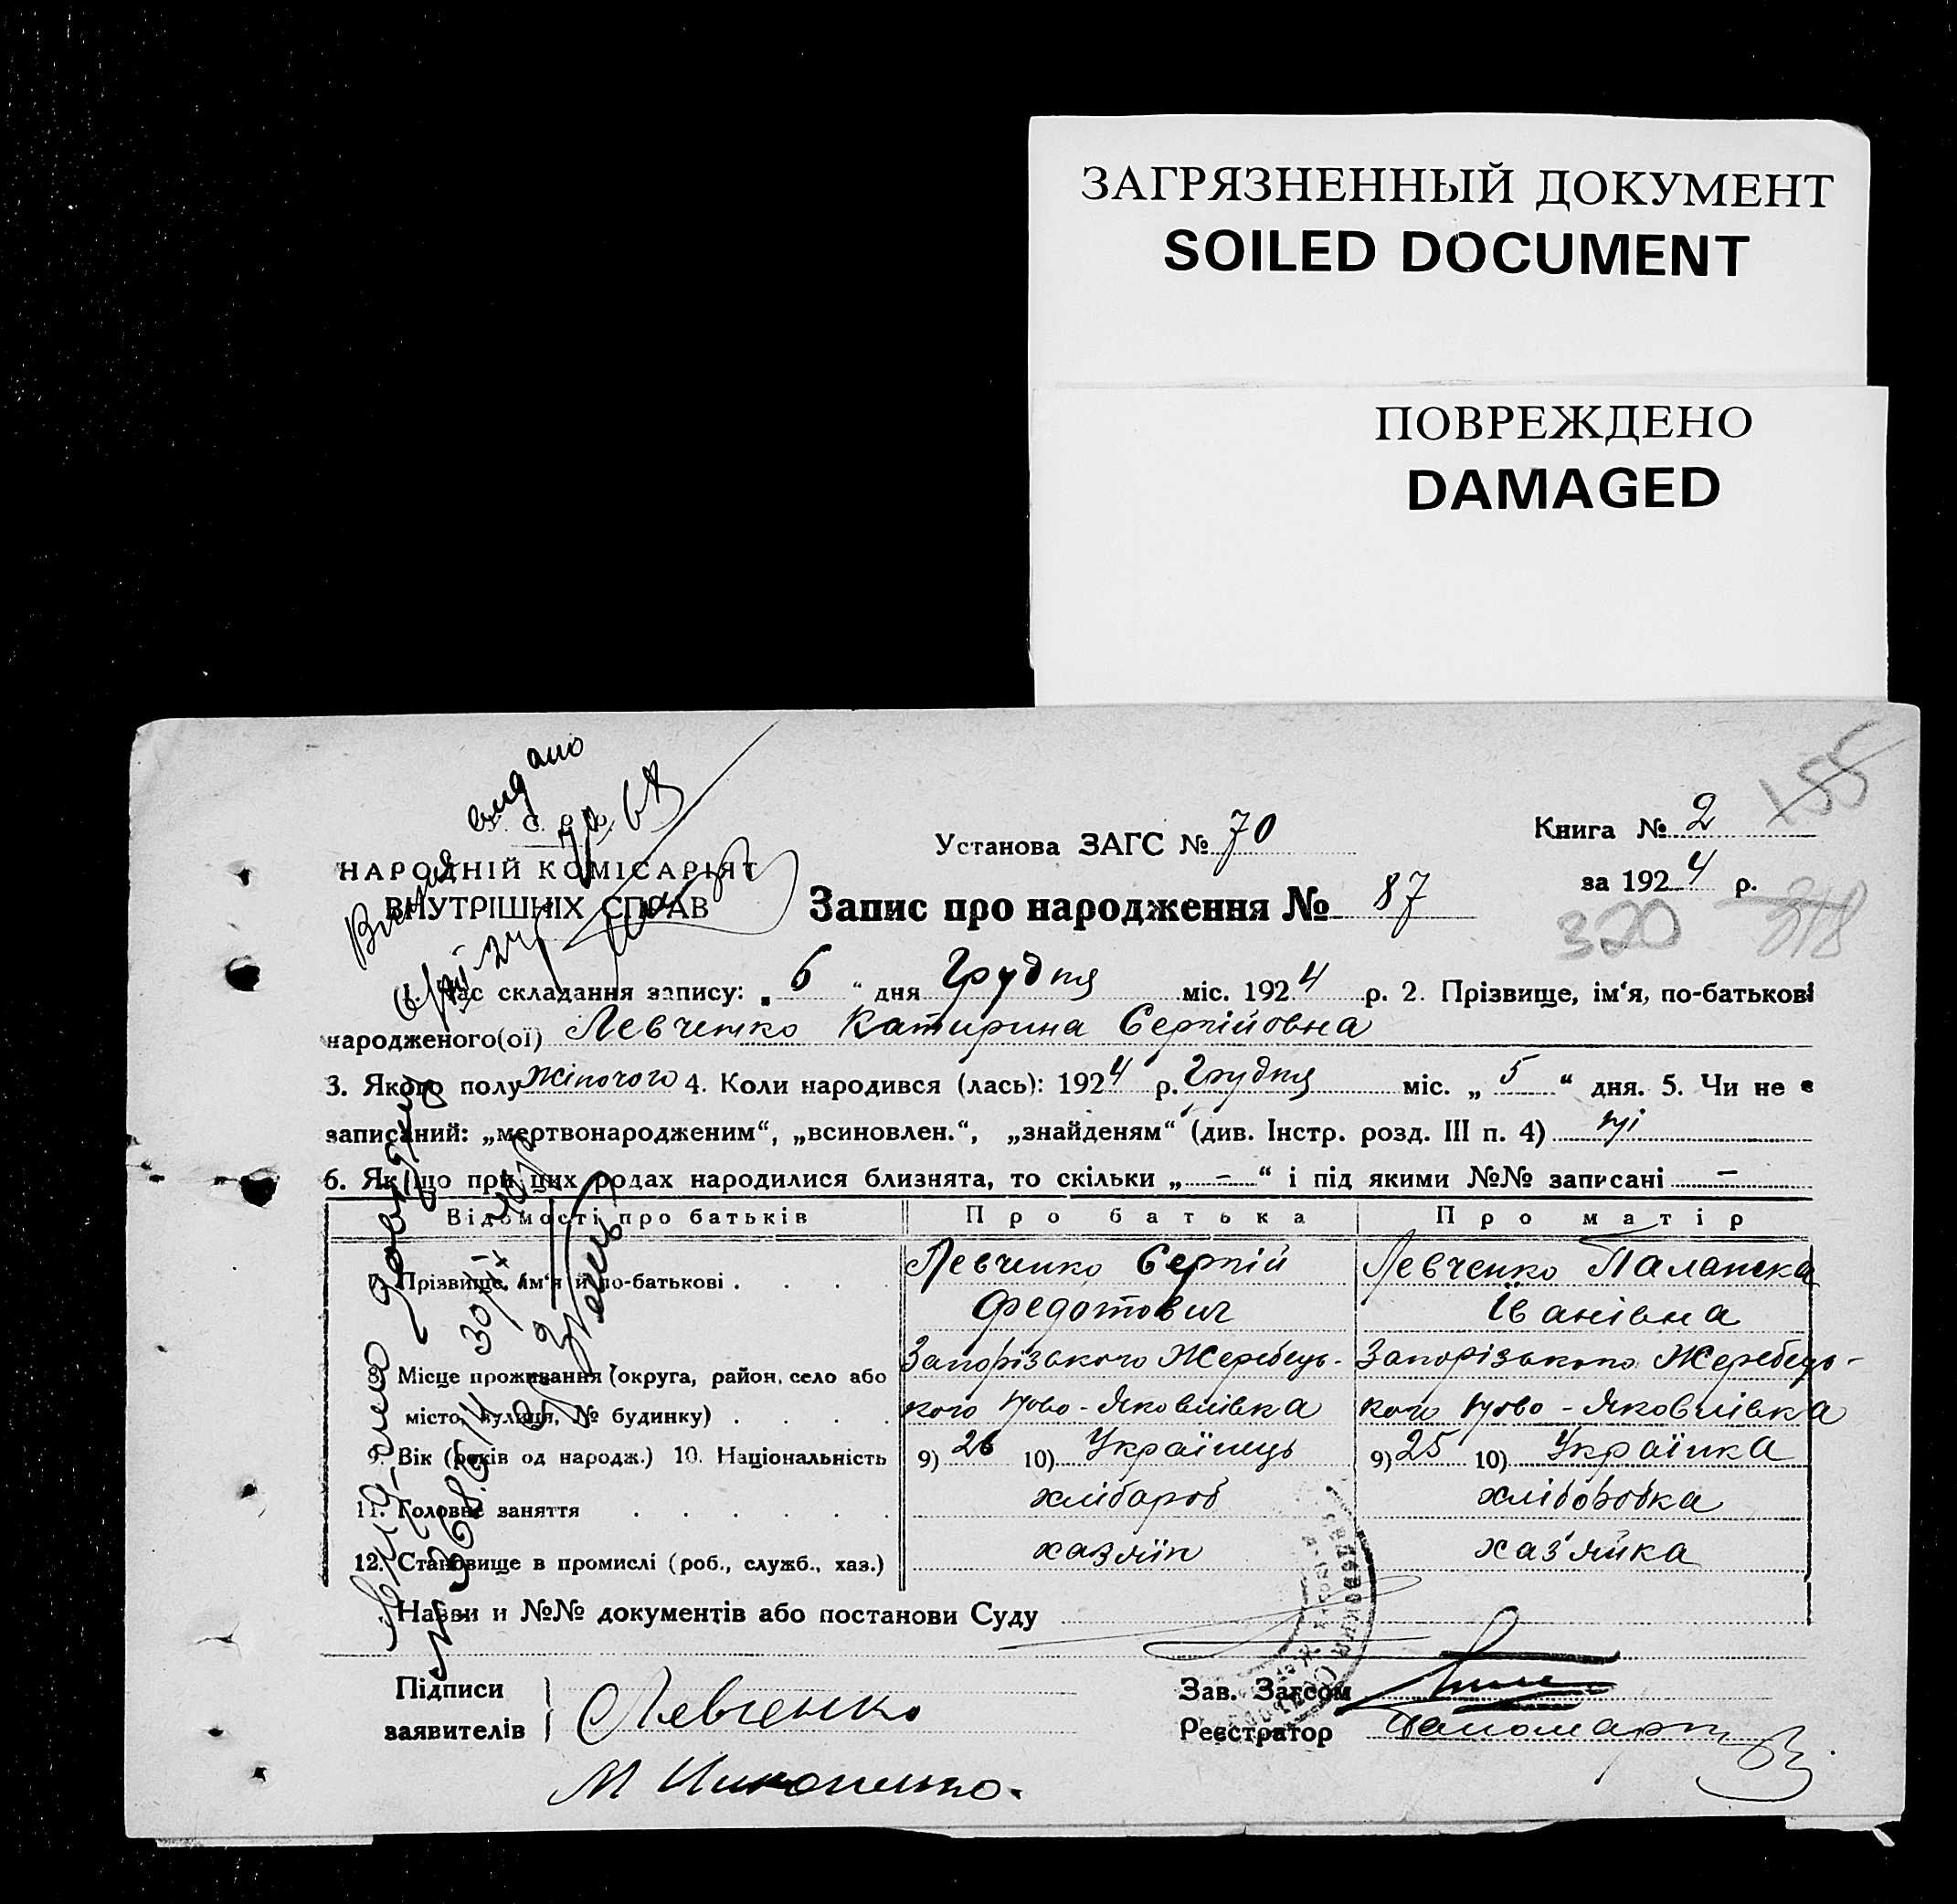 ЗАГРЯЗНЕННЫЙ ДОКУМЕНТ
SOILED DOCUMENT
ПОВРЕЖДЕНО
DAMAGED
видано
У. С. Р. Р.
НАРОДНІЙ КОМІСАРІЯТ
ВНУТРІШНІХ СПРАВ
Установа ЗАГС № 70
Книга № 2
155
за 1924 р.
Запис про народження № 87
320 318
1. Час складання запису: „ 6 “ дня Грудня міс. 1924 р. 2. Прізвище, ім‘я, по-батькові
народженого(ої) Левченко Катирина Сергійовна
3. Якого полу Жіночого 4. Коли народився (лась): 1924 р. Грудня міс. „ 5 “ дня. 5. Чи не є
записаний: „мертвонародженим“, „всиновлен.“, „знайденям“ (див. Інстр. розд. III п. 4) ні
6. Якщо при цих родах народилися близнята, то скільки „ – “ і під якими №№ записані –
Відомості про батьків Про батька Про матір
7. Прізвище, ім‘я й по-батькові . . . . Левченко Сергій Левченко Палашка
Федотович Іванівна
8. Місце проживання (округа, район, село або Запорізького Жеребець- Запорізького Жеребець-
місто, вулиця, № будинку) . . . . кого Ново-Яковлівка кого Ново-Яковлівка
9. Вік (років од народж.) 10. Національність 9) 26 10) Українець 9) 25 10) Українка
11. Головне заняття . . . . . . хлібароб хліборобка
12. Становище в промислі (роб., служб., хаз.) хазяїн хаз'яйка
Назви и №№ документів або постанови Суду
Підписи
заявителів
Левченко
Зав. Загсом
Реєстратор